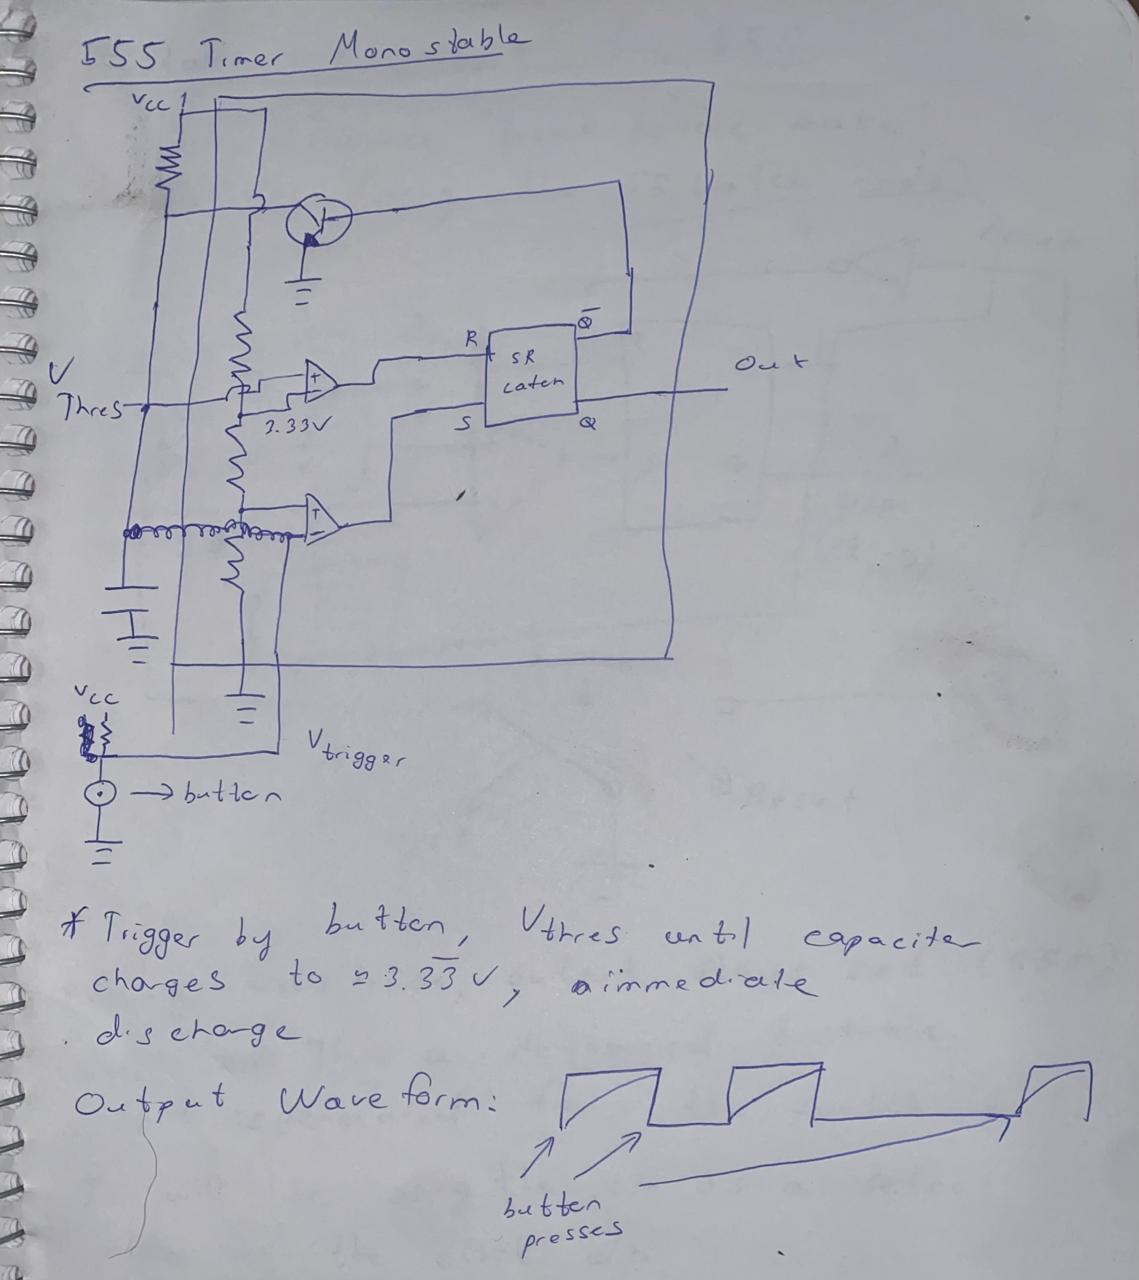 555 Timer Monostable
VCC
R
Q̅
SR
Latch
Out
V
Thres
+
-
3.33V
S
Q
+
-
VCC
Vtrigger
→ button
* Trigger by button, Vthres until capacitor
charges to ≈ 3.3̅3̅ V, immediate
discharge
Output Waveform:
button
presses